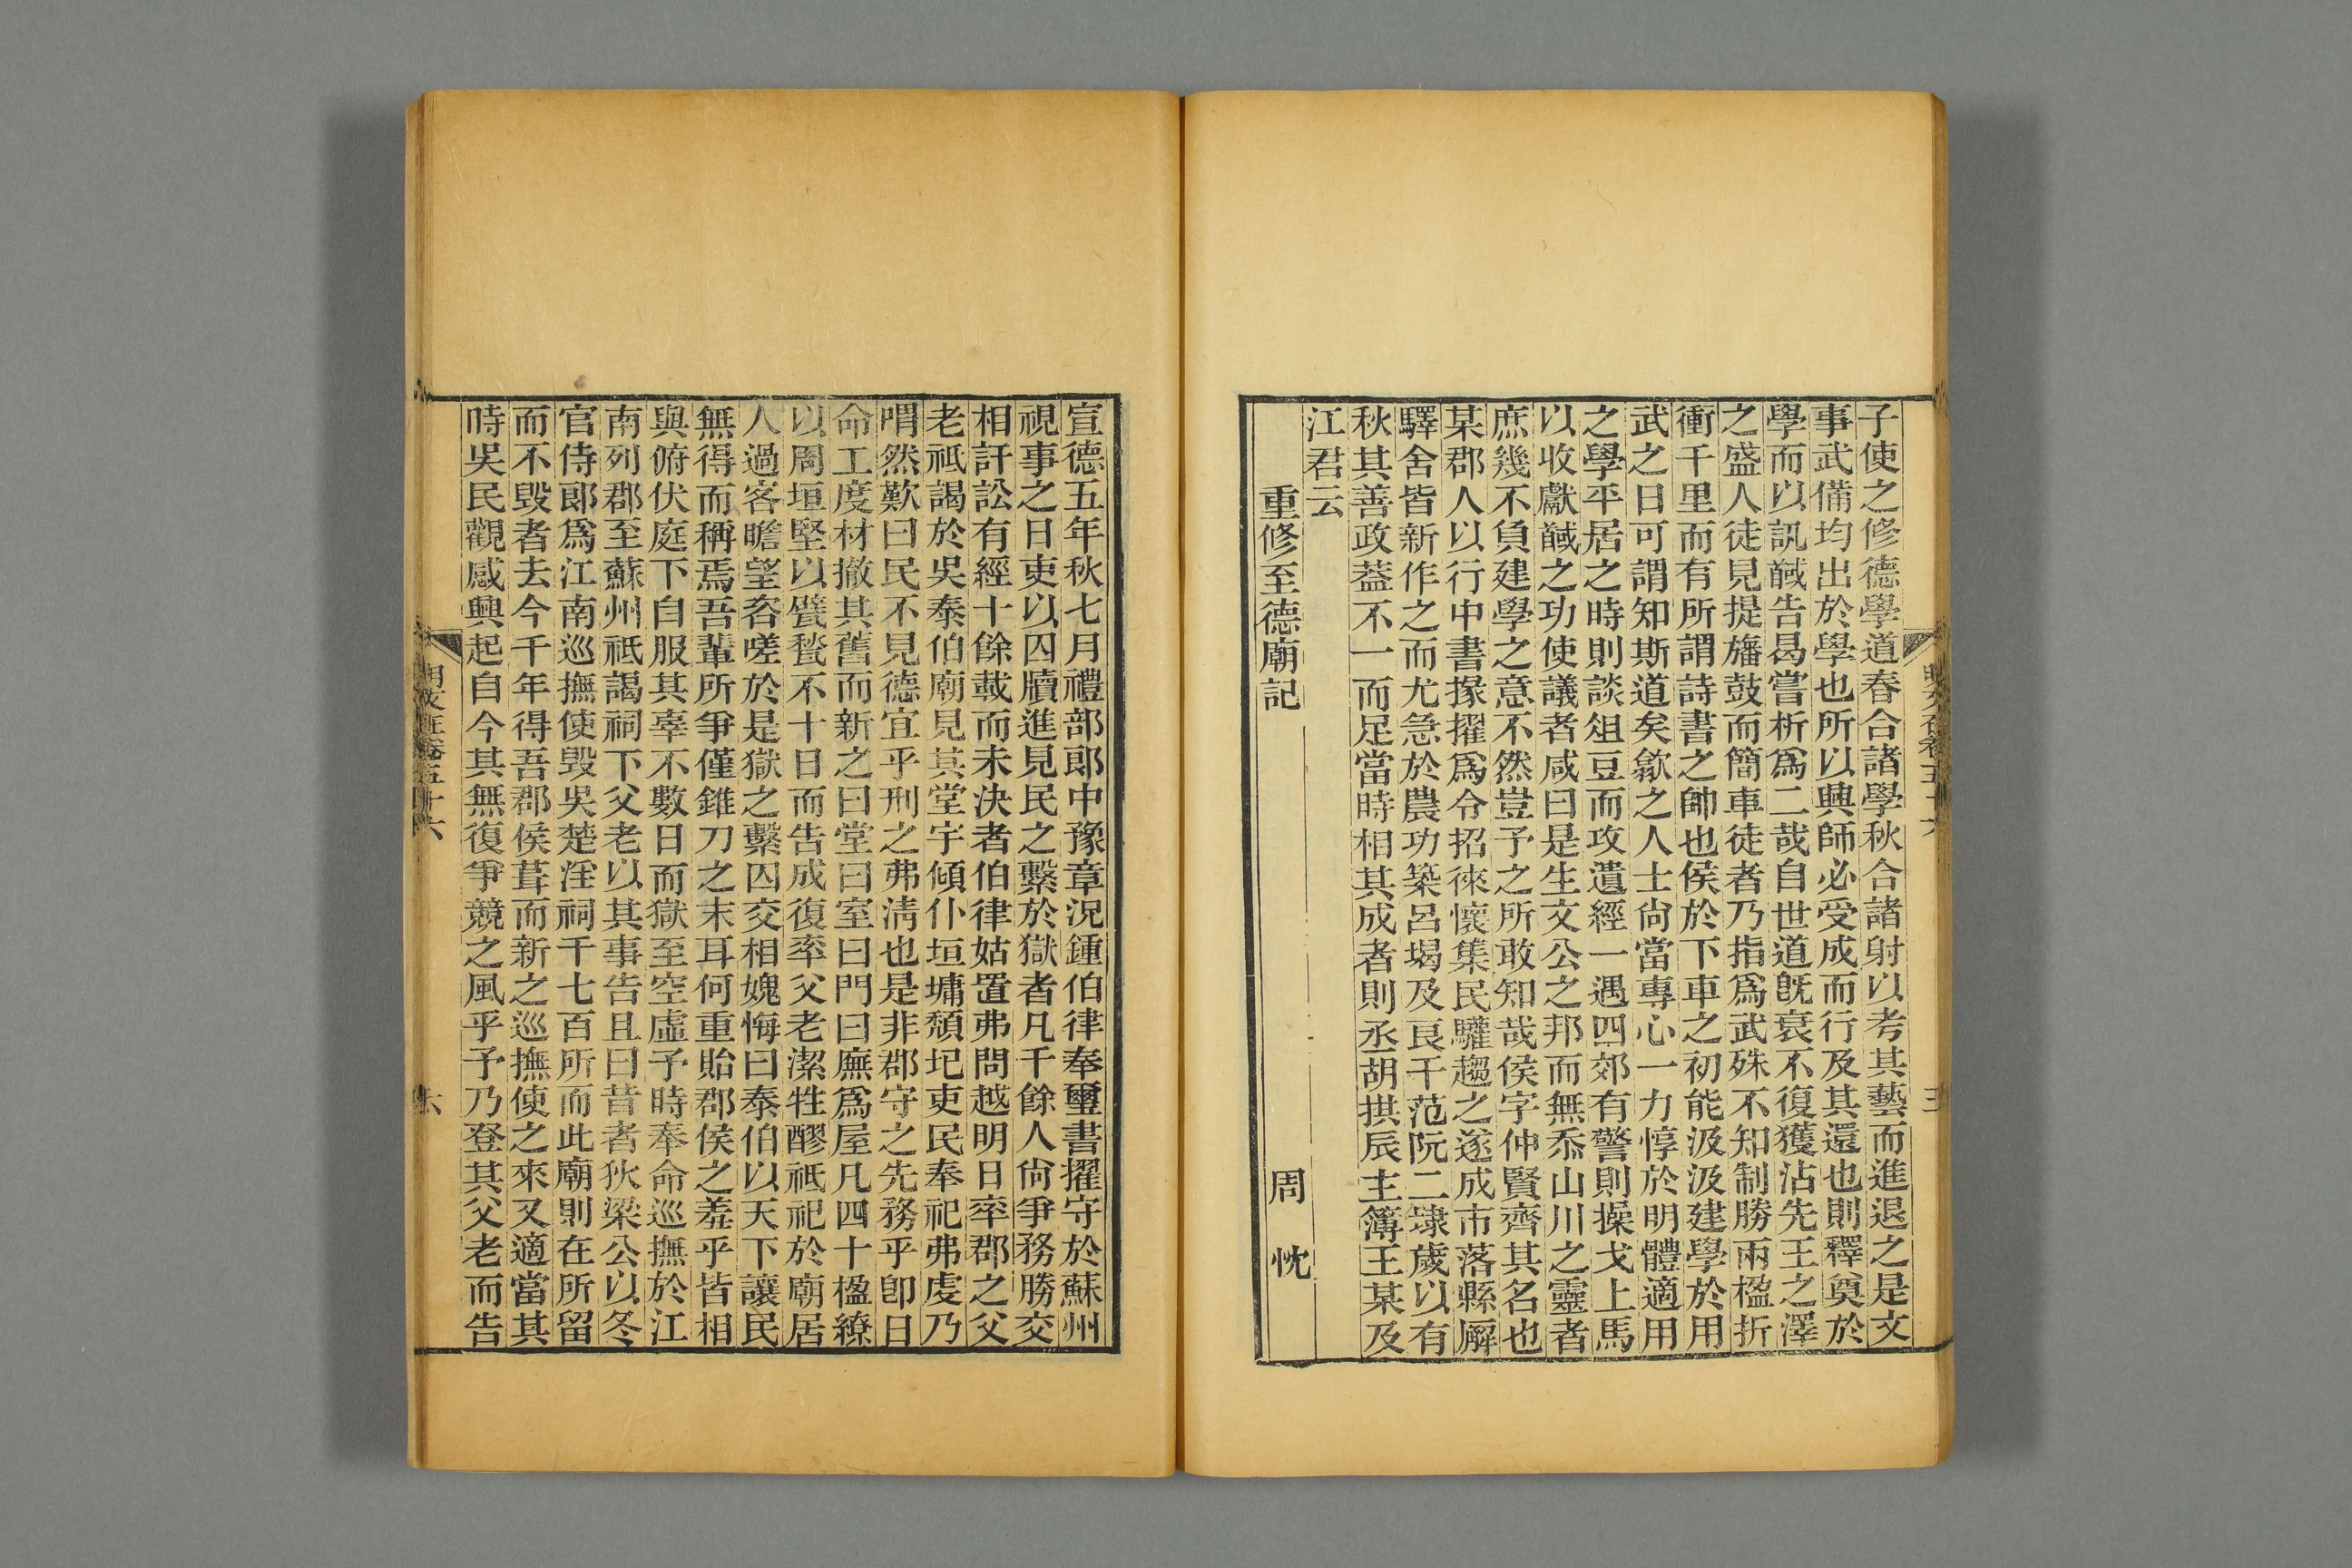 子使之修德學道春合諸學秋合諸射以考其藝而進退之是文
事武備均出於學也所以興師必受成而行及其還也則釋奠於
學而以訊馘告曷嘗析爲二哉自世道旣衰不復獲沾先王之澤
之盛人徒見提旛鼓而簡車徒者乃指爲武殊不知制勝兩楹折
衝千里而有所謂詩書之帥也侯於下車之初能汲汲建學於用
武之日可謂知斯道矣歙之人士尙當專心一力惇於明體適用
之學平居之時則談俎豆而攻遺經一遇四郊有警則操戈上馬
以收獻馘之功使議者咸曰是生文公之邦而無忝山川之靈者
庶幾不負建學之意不然豈予之所敢知哉侯字仲賢齊其名也
某郡人以行中書掾擢爲令招徠懷集民驩趨之遂成市落縣廨
驛舍皆新作之而尤急於農功築呂堨及艮干范阮二埭歲以有
秋其善政葢不一而足當時相其成者則丞胡拱辰主簿王某及
江君云
重修至德廟記 周忱
宣德五年秋七月禮部郞中豫章況鍾伯律奉璽書擢守於蘇州
視事之日吏以囚牘進見民之繫於獄者凡千餘人尙爭務勝交
相訐訟有經十餘載而未決者伯律姑置弗問越明日率郡之父
老祗謁於吳泰伯廟見其堂宇傾仆垣墉頽圯吏民奉祀弗虔乃
喟然歎曰民不見德宜乎刑之弗淸也是非郡守之先務乎卽日
命工度材撤其舊而新之曰堂曰室曰門曰廡爲屋凡四十楹繚
以周垣堅以甓甃不十日而告成復率父老潔牲醪祗祀於廟居
人過客瞻望咨嗟於是獄之繫囚交相媿悔曰泰伯以天下讓民
無得而稱焉吾輩所爭僅錐刀之末耳何重貽郡侯之羞乎皆相
與俯伏庭下自服其辜不數日而獄至空虛予時奉命巡撫於江
南列郡至蘇州祗謁祠下父老以其事告且曰昔者狄梁公以冬
官侍郞爲江南巡撫使毀吳楚淫祠千七百所而此廟則在所留
而不毀者去今千年得吾郡侯葺而新之巡撫使之來又適當其
時吳民觀感興起自今其無復爭競之風乎予乃登其父老而告
六